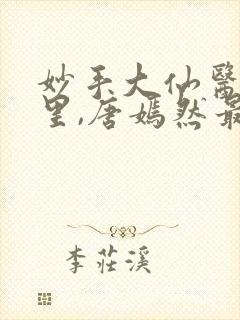 妙手大仙醫
里,唐嫣然最
李莊溪